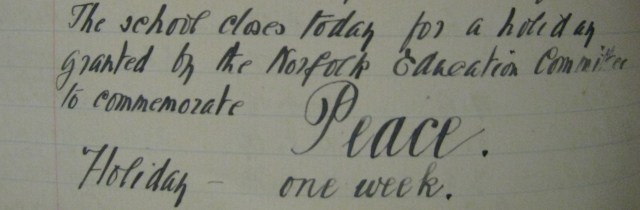 The school closes today for a holiday
granted by the Norfolk Education Committee
to commemorate Peace.
Holiday - one week.